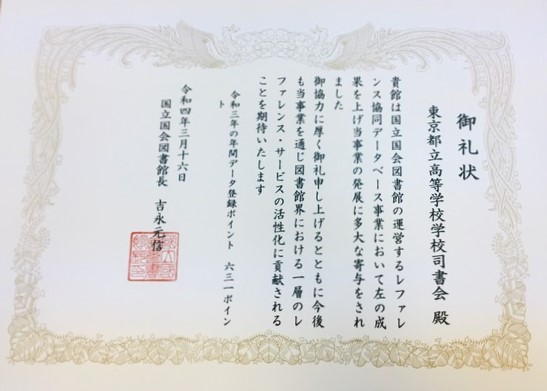 御礼状
東京都立高等学校学校司書会 殿
貴館は国立国会図書館の運営するレファレ
ンス協同データベース事業において左の成
果を上げ当事業の発展に多大な寄与をされ
ました
御協力に厚く御礼申し上げるとともに今後
も当事業を通じ図書館界における一層のレ
ファレンス・サービスの活性化に貢献される
ことを期待いたします
令和三年の年間データ登録ポイント 六三一ポイン
ト
令和四年三月十六日
国立国会図書館長 吉永元信